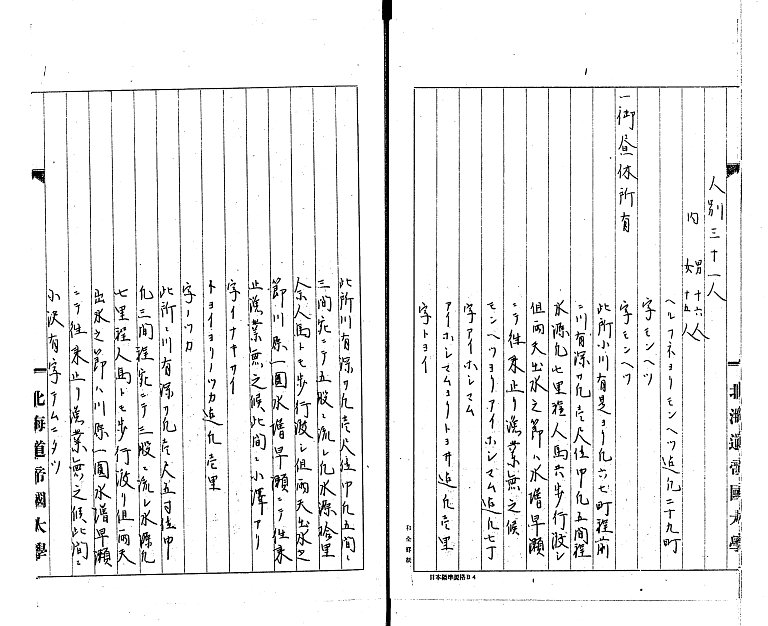 人別三十一人
内 男十六人
女十五人
ヘルフネヨリモンベツ迄凡二十九町
字モンベツ
一御昼休所有
字モンベツ
此所小川有是ヨリ凡六七町程前
ニ川有深サ凡壱尺位巾凡五間程
水源凡七里程人馬共歩行渡シ
但雨天出水之節ハ水増早瀬
ニテ往来止リ漁業無之候
モンベツヨリアイホシマム迄凡七丁
字アイホシマム
アイホシマムヨリトヨイ迄凡壱里
字トヨイ
此所川有深サ凡壱尺位巾凡五間ニ
三間宛ニテ五股ニ流レ凡水源拾里
余人馬トモ歩行渡シ但雨天出水之
節川原一圓水増早瀬ニテ往来
止漁業無之候此間ニ小澤アリ
字イナヤカイ
トヨイヨリノツカ迄凡壱里
字ノツカ
此所ニ川有深サ凡壱尺五寸位巾
凡三間程宛ニテ三股ニ流レ水源凡
七里程人馬トモ歩行渡リ但雨天
出水之節ハ川原一圓水増早瀬
ニテ往来止リ漁業無之候此間ニ
小沢有字テムニタツ
北海道帝國大學
北海道帝國大學
日本標準規格B4